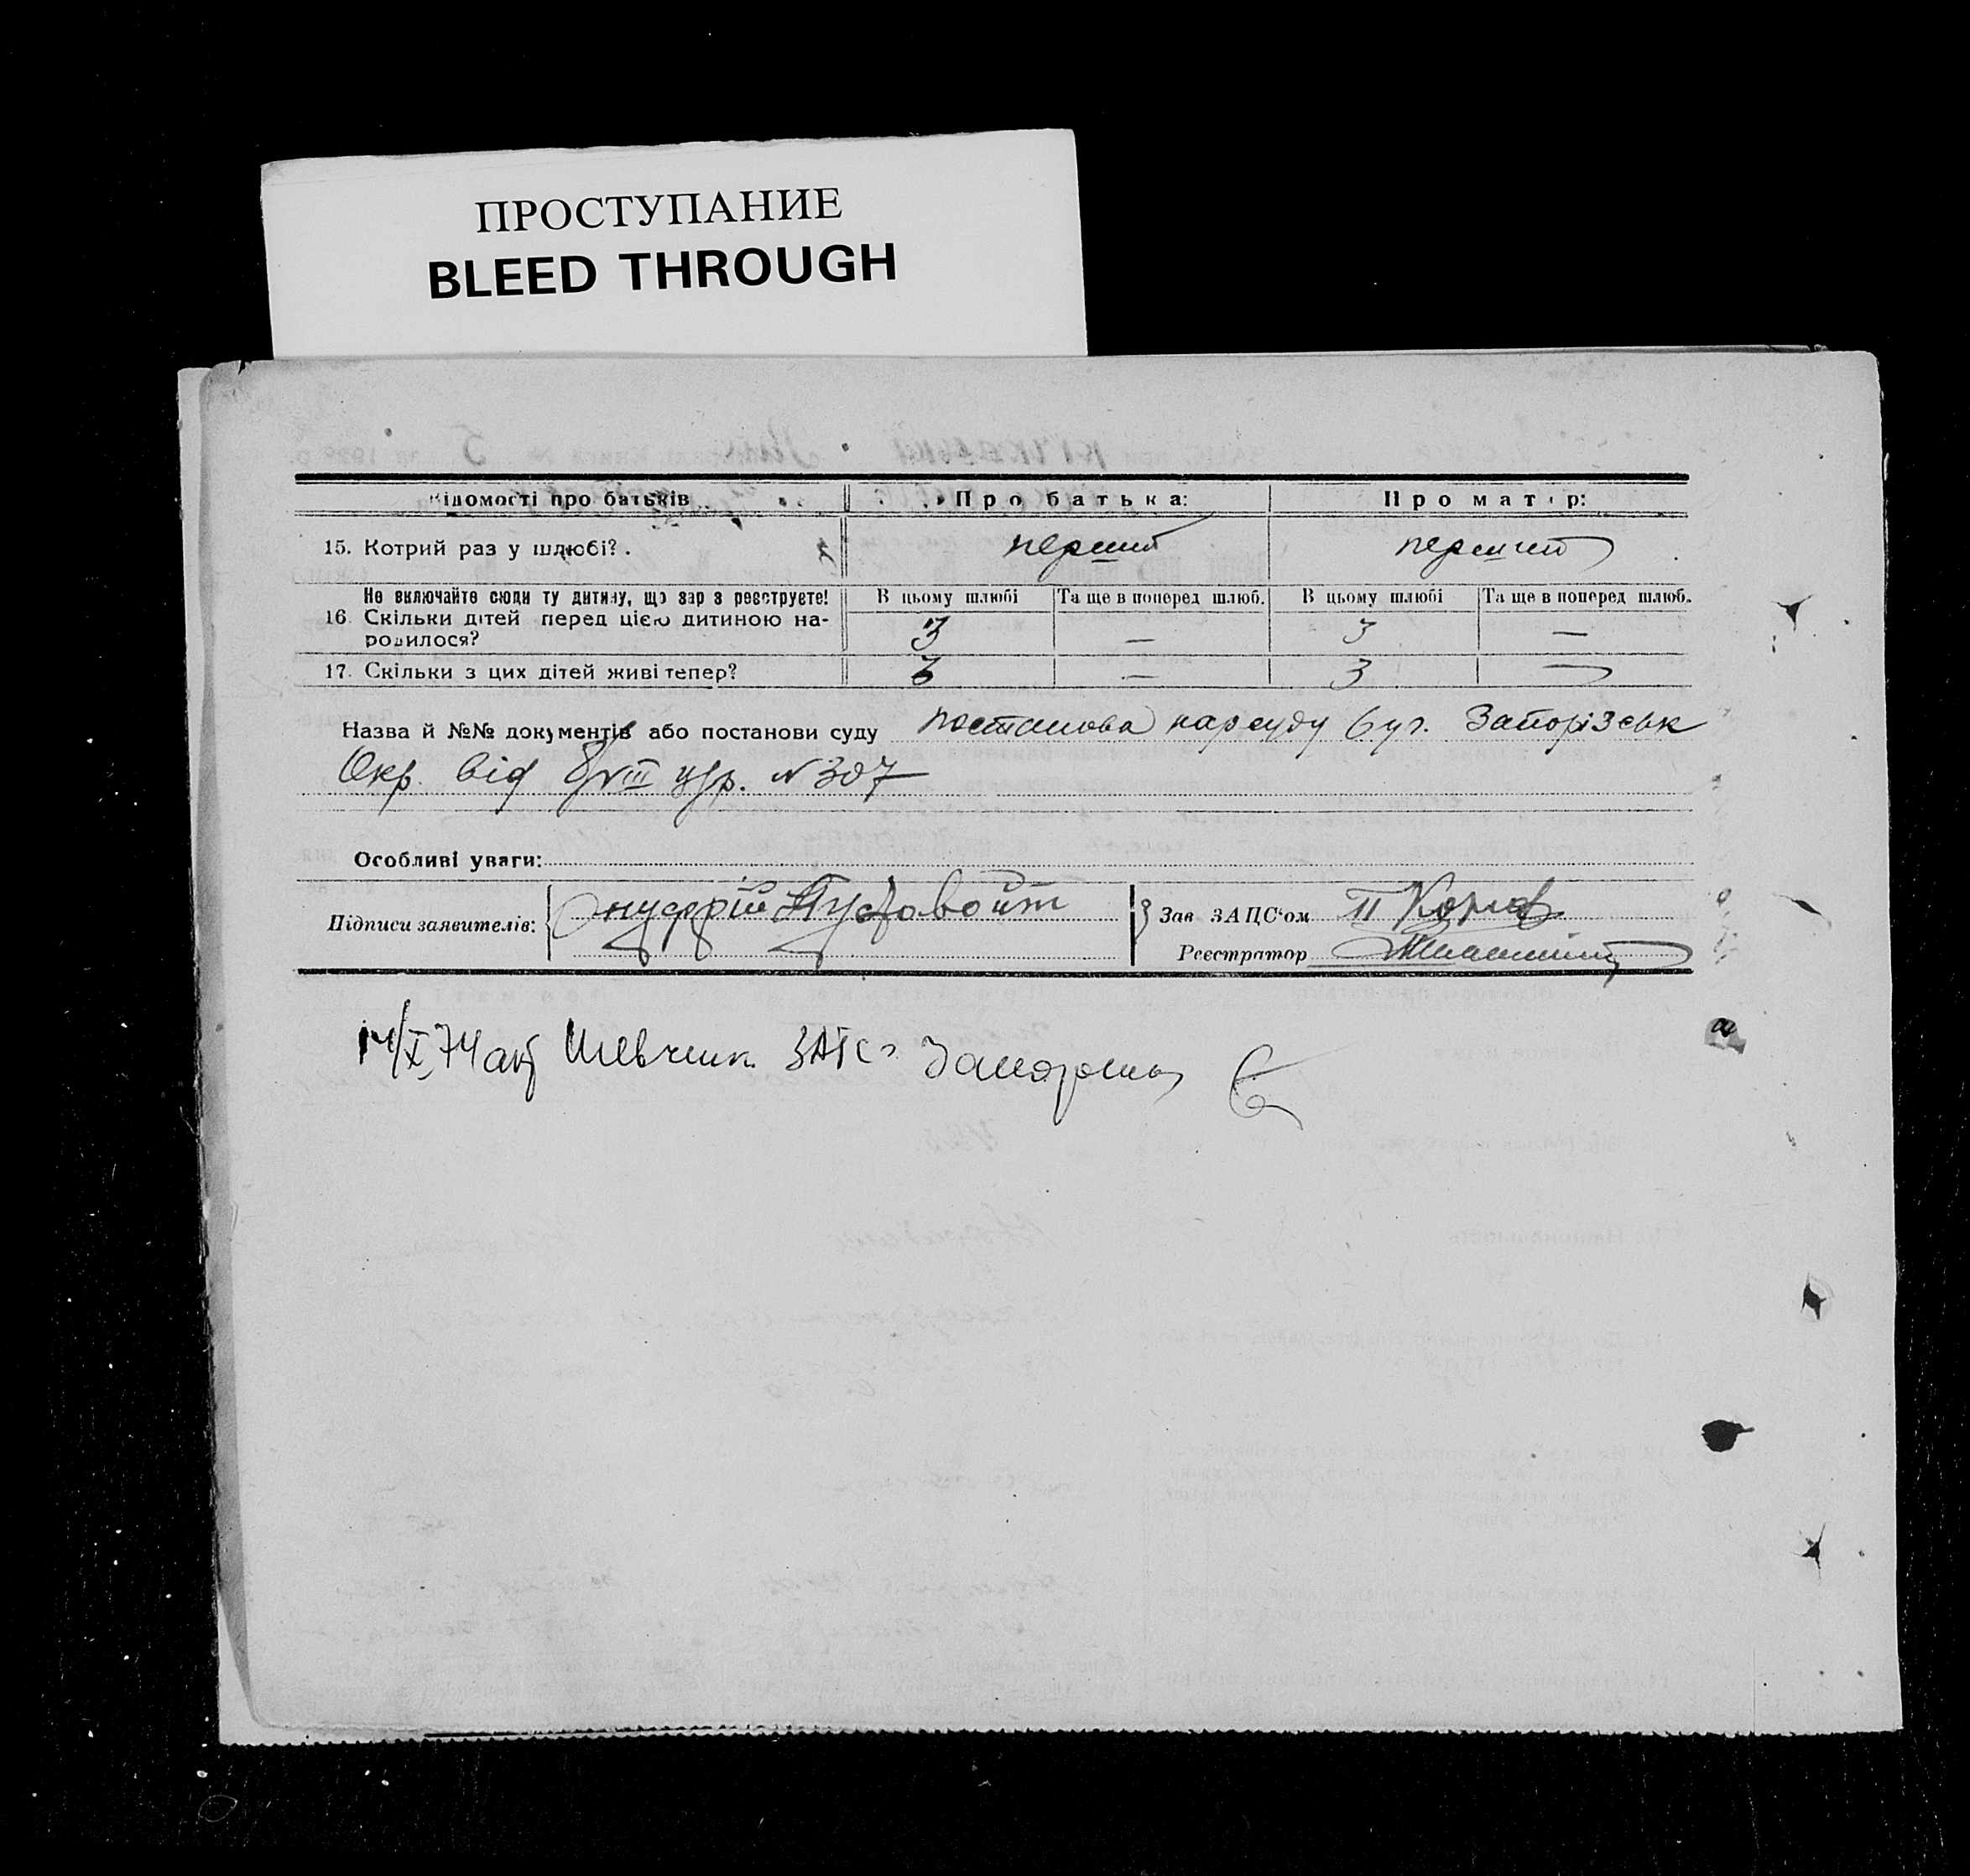 ПРОСТУПАНИЕ
BLEED THROUGH
Відомості про батьків Про батька: Про матір:
15. Котрий раз у шлюбі? перший перший
Не включайте сюди ту дитину, що зар з реєструєте! В цьому шлюбі Та ще в поперед шлюб. В цьому шлюбі Та ще в поперед шлюб.
16. Скільки дітей перед цією дитиною на-
родилося? 3 — 3 —
17. Скільки з цих дітей живі тепер? 3 — 3 —
Назва й №№ документів або постанови суду постанова нарсуду 6 уч. Запорізськ
Окр. від 8/VIII ц/р. N 307
Особливі уваги:
Підписи заявителів: Онуфрій Пустовойт Зав ЗАЦС'ом
Реєстратор
14/X 74 Шевченк. ЗАГС